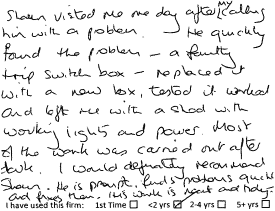 Shaun visted me one day after my calling
him with a problem. He quickly
found the problem - a faulty
trip switch box - replaced it
with a new box, tested it worked
and left me with a shed with
working lights and power. Most
of the work was carried out after
dark. I would definitely recommend
Shaun. He is prompt, finds problems quickly
and fixes them. His work is neat and tidy.
I have used this firm: 1st Time ☐ <2 yrs ☑ 2-4 yrs ☐ 5+ yrs ☐